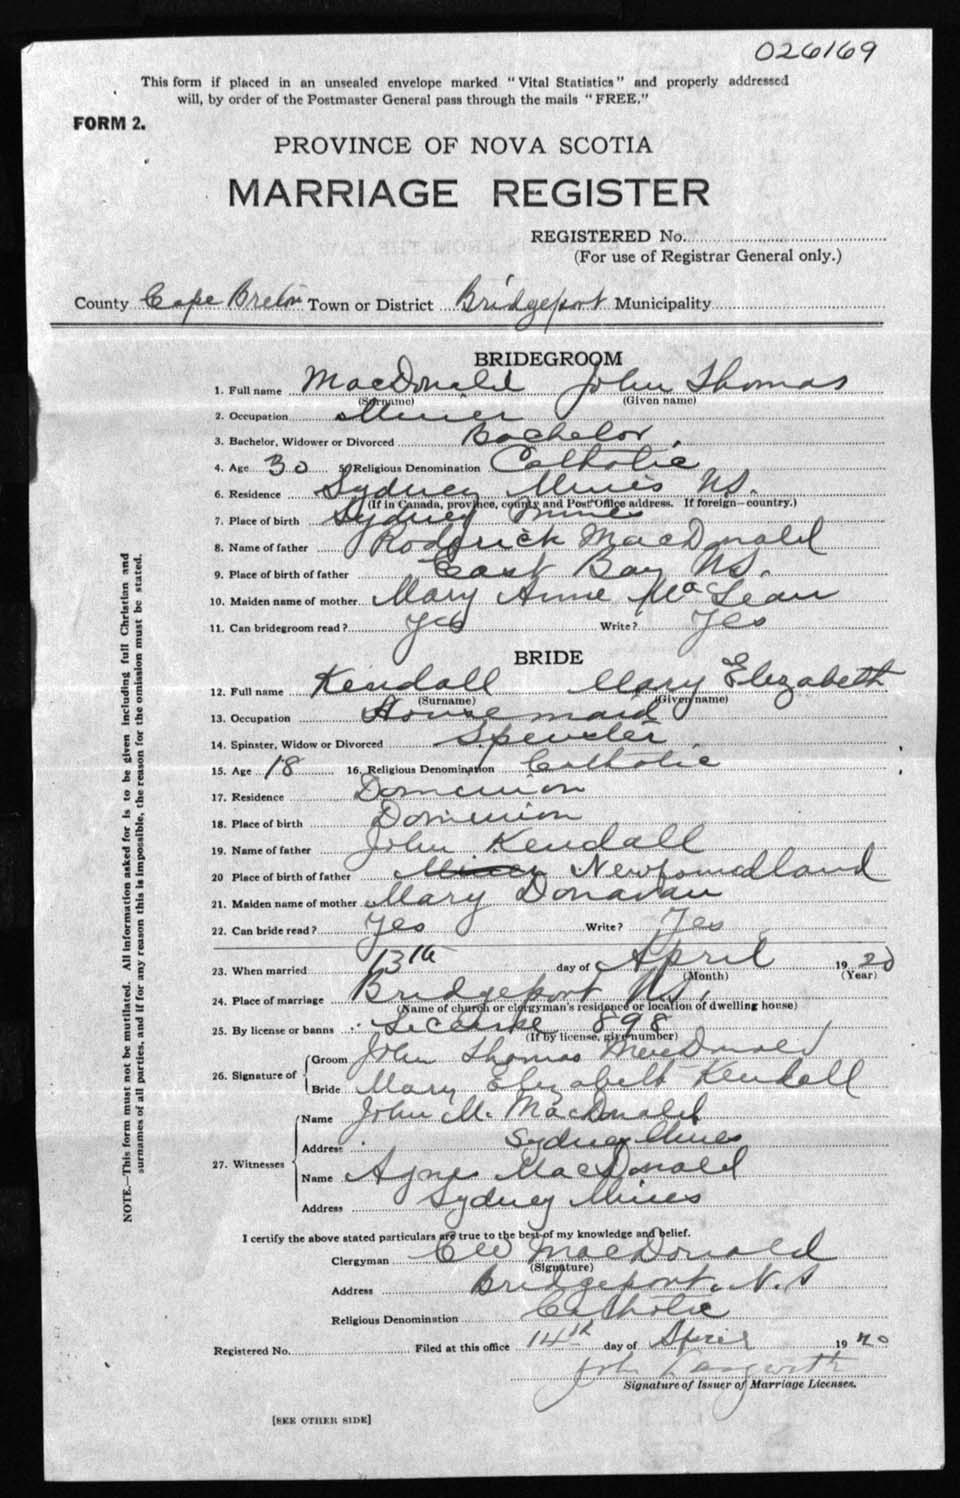 026169
This form if placed in an unsealed envelope marked "Vital Statistics" and properly addressed
will, by order of the Postmaster General pass through the mails "FREE."
FORM 2.
PROVINCE OF NOVA SCOTIA
MARRIAGE REGISTER
REGISTERED No.
(For use of Registrar General only.)
County Cape Breton Town or District Bridgeport Municipality
BRIDEGROOM
1. Full name MacDonald John Thomas
(Surname) (Given name)
2. Occupation Miner
3. Bachelor, Widower or Divorced Bachelor
4. Age 30 5. Religious Denomination Catholic
6. Residence Sydney Mines NS.
(If in Canada, province, county and Post Office address. If foreign—country.)
7. Place of birth Sydney Mines
8. Name of father Roderick MacDonald
9. Place of birth of father East Bay NS.
10. Maiden name of mother Mary Anne McLean
11. Can bridegroom read? Yes Write? Yes
BRIDE
12. Full name Kendall Mary Elizabeth
(Surname) (Given name)
13. Occupation Housemaid
14. Spinster, Widow or Divorced Spinster
15. Age 18 16. Religious Denomination Catholic
17. Residence Dominion
18. Place of birth Dominion
19. Name of father John Kendall
20 Place of birth of father Newfoundland
21. Maiden name of mother Mary Donavan
22. Can bride read? Yes Write? Yes
23. When married 13th day of April 1920
(Month) (Year)
24. Place of marriage Bridgeport NS.
(Name of church or clergyman's residence or location of dwelling house)
25. By license or banns License 898
(If by license, give number)
26. Signature of Groom John Thomas MacDonald
Bride Mary Elizabeth Kendall
27. Witnesses Name John M. MacDonald
Address Sydney Mines
Name Agnes MacDonald
Address Sydney Mines
I certify the above stated particulars are true to the best of my knowledge and belief.
Clergyman MacDonald
(Signature)
Address Bridgeport. N.S
Religious Denomination Catholic
Registered No. Filed at this office 14th day of April 1920
John
Signature of Issuer of Marriage Licenses.
[SEE OTHER SIDE]
NOTE.—This form must not be mutilated. All information asked for is to be given including full Christian and
surnames of all parties, and if for any reason this is impossible, the reason for the omission must be stated.